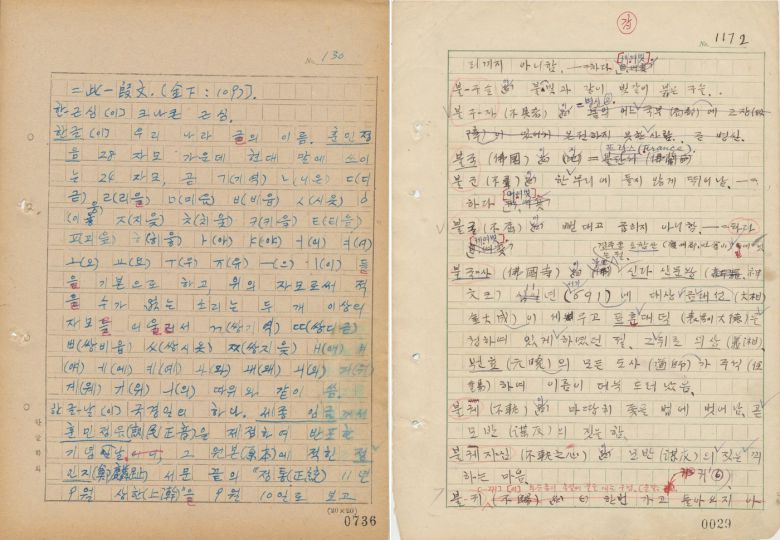 No 130
=此一段文. (全下:1093).
한-근심(이) 크나큰 근심.
한글(이) 우리 나라 글의 이름. 훈민정
음 28 자모 가운데 현대 말에 쓰이
는 24 자모, 곧 ㄱ(기역) ㄴ(니은) ㄷ(디
귿) ㄹ(리을) ㅁ(미음) ㅂ(비읍) ㅅ(시옷) ㅇ
(이응) ㅈ(지읒) ㅊ(치읓) ㅋ(키읔) ㅌ(티읕)
ㅍ(피읖) ㅎ(히읗) ㅏ(아) ㅑ(야) ㅓ(어) ㅕ(여)
ㅗ(오) ㅛ(요) ㅜ(우) ㅠ(유) ㅡ(으) ㅣ(이) 들
을 기본으로 하고 위의 자모로써 적
을 수가 없는 소리는 두 개 이상의
자모를 어울러서 ㄲ(쌍기역) ㄸ(쌍디귿)
ㅃ(쌍비읍) ㅆ(쌍시옷) ㅉ(쌍지읒) ㅐ(애) ㅒ
(얘) ㅔ(에) ㅖ(예) ㅘ(와) ㅙ(왜) ㅚ(외) ㅝ(워)
ㅞ(웨) ㅟ(위) ㅢ(의) 따위와 같이 씀.
한글-날(이) 국경일의 하나. 세종 임금께서
훈민정음(訓民正音)을 제정하여 반포한
기념 날. 그 원본(原本)에 적힌 정
인지(鄭麟趾) 서문 끝의 "정통(正統) 11년
9월 상한(上澣)"을 9월 10일로 보고
(20×20)
한글학회
0736
갑
No 1172
리끼지 아니함. —하다
불-구슬 불빛과 같이 빛깔이 붉은 구슬.
불구-자(不具者)
사람. 곧 병신.
프랑스(France).
불국(佛國)
불군(不群) 한 부리에 들지 않게 뛰어남. —
하다
불굴(不屈) 뻗대고 굽히지 아니함. —하다
불국-사(佛國寺) 신라 신문왕
년(691)에 대상 김대성(大相
金大成)이 세우고 표훈 대덕(表訓大德)을
청하여 있게 하였던 절. 그 뒤로 의상(義湘)
원효(元曉)의 모든 도사(道師)가 주석(住
錫)하여 이름이 더욱 드러났음.
불궤(不軌) 마땅히 좇을 법에 벗어남. 곧
모반(謀反)의 짓을 함.
불궤지심(不軌之心) 모반(謀反)의 짓을 꾀
하는 마음.
불귀(不歸) 한번 가고 돌아오지 아
0029